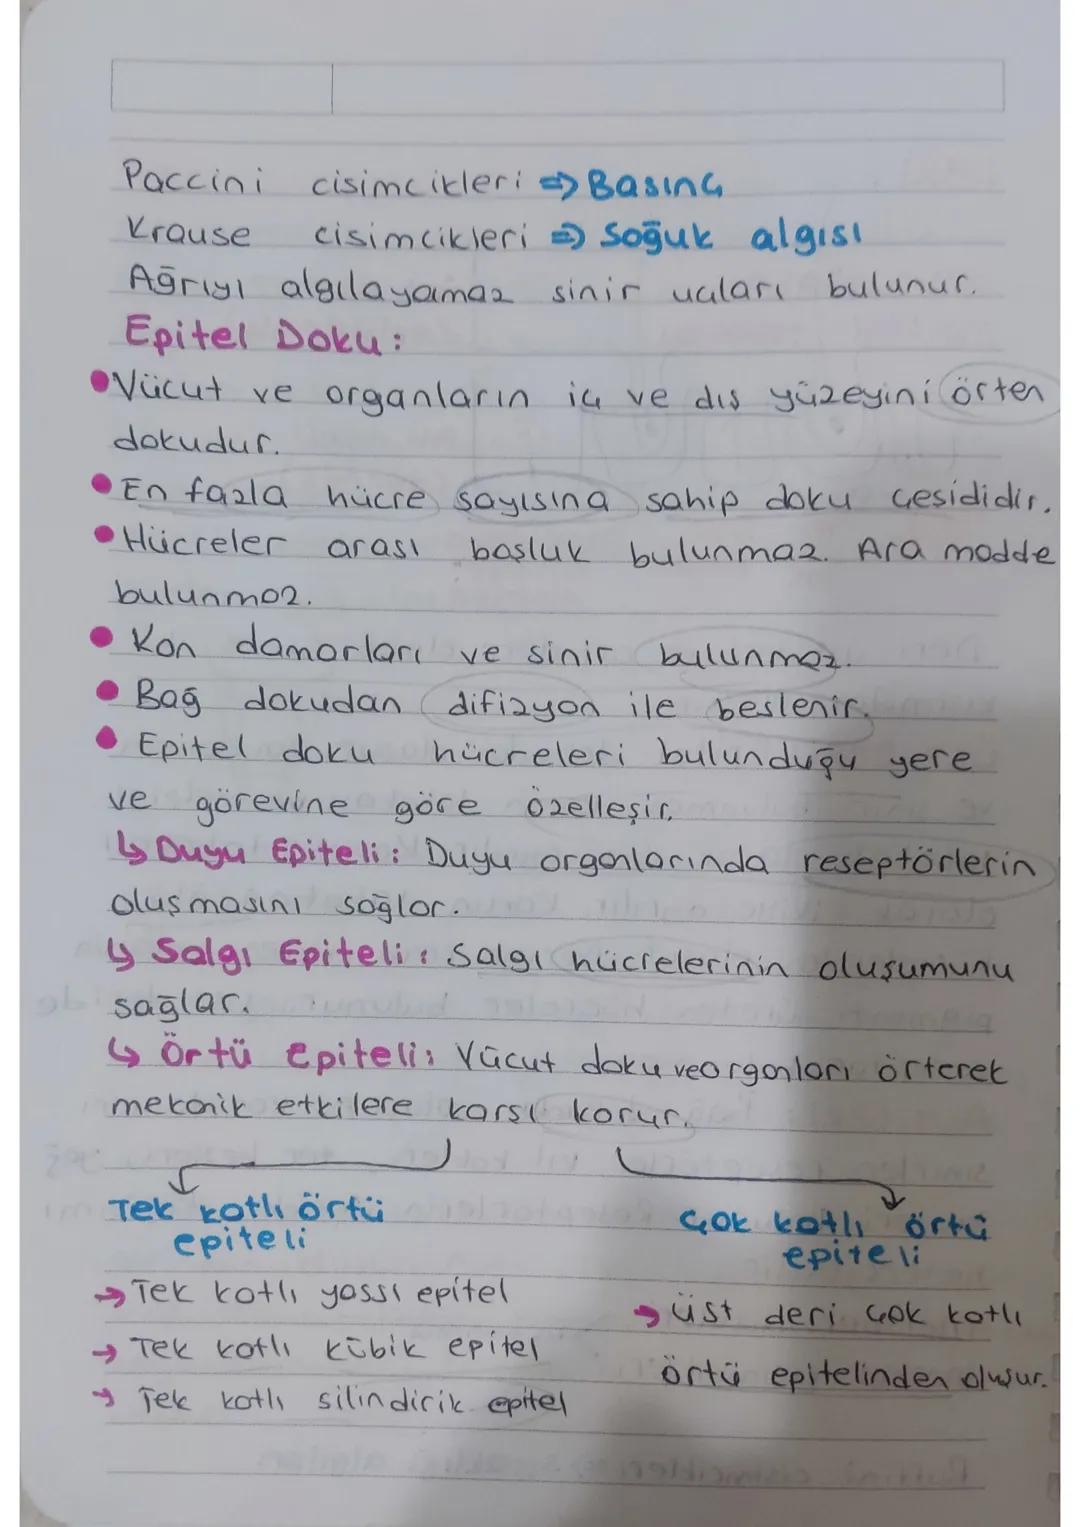 Paccini cisimcikleri ⇒ Basınç
Krause cisimcikleri ⇒ Soğuk algısı
Ağrıyı algılayamaz sinir uçları bulunur.
Epitel Doku:
•Vücut ve organların iç ve dış yüzeyini örten
dokudur.
•En fazla hücre sayısına sahip doku çeşididir.
•Hücreler arası boşluk bulunmaz. Ara madde
bulunmaz.
• Kan damarları ve sinir bulunmaz.
• Bağ dokudan difizyon ile beslenir.
• Epitel doku hücreleri bulunduğu yere
ve görevine göre özelleşir.
↳ Duyu Epiteli: Duyu organlarında reseptörlerin
oluşmasını sağlar.
↳ Salgı Epiteli: Salgı hücrelerinin oluşumunu
sağlar.
↳ Örtü epiteli: Vücut doku ve organları örterek
mekanik etkilere karşı korur.
Tek katlı örtü
epiteli
→ Tek katlı yassı epitel
→ Tek katlı kübik epitel
→ Tek katlı silindirik epitel
Çok katlı örtü
epiteli
→ üst deri çok katlı
örtü epitelinden oluşur.